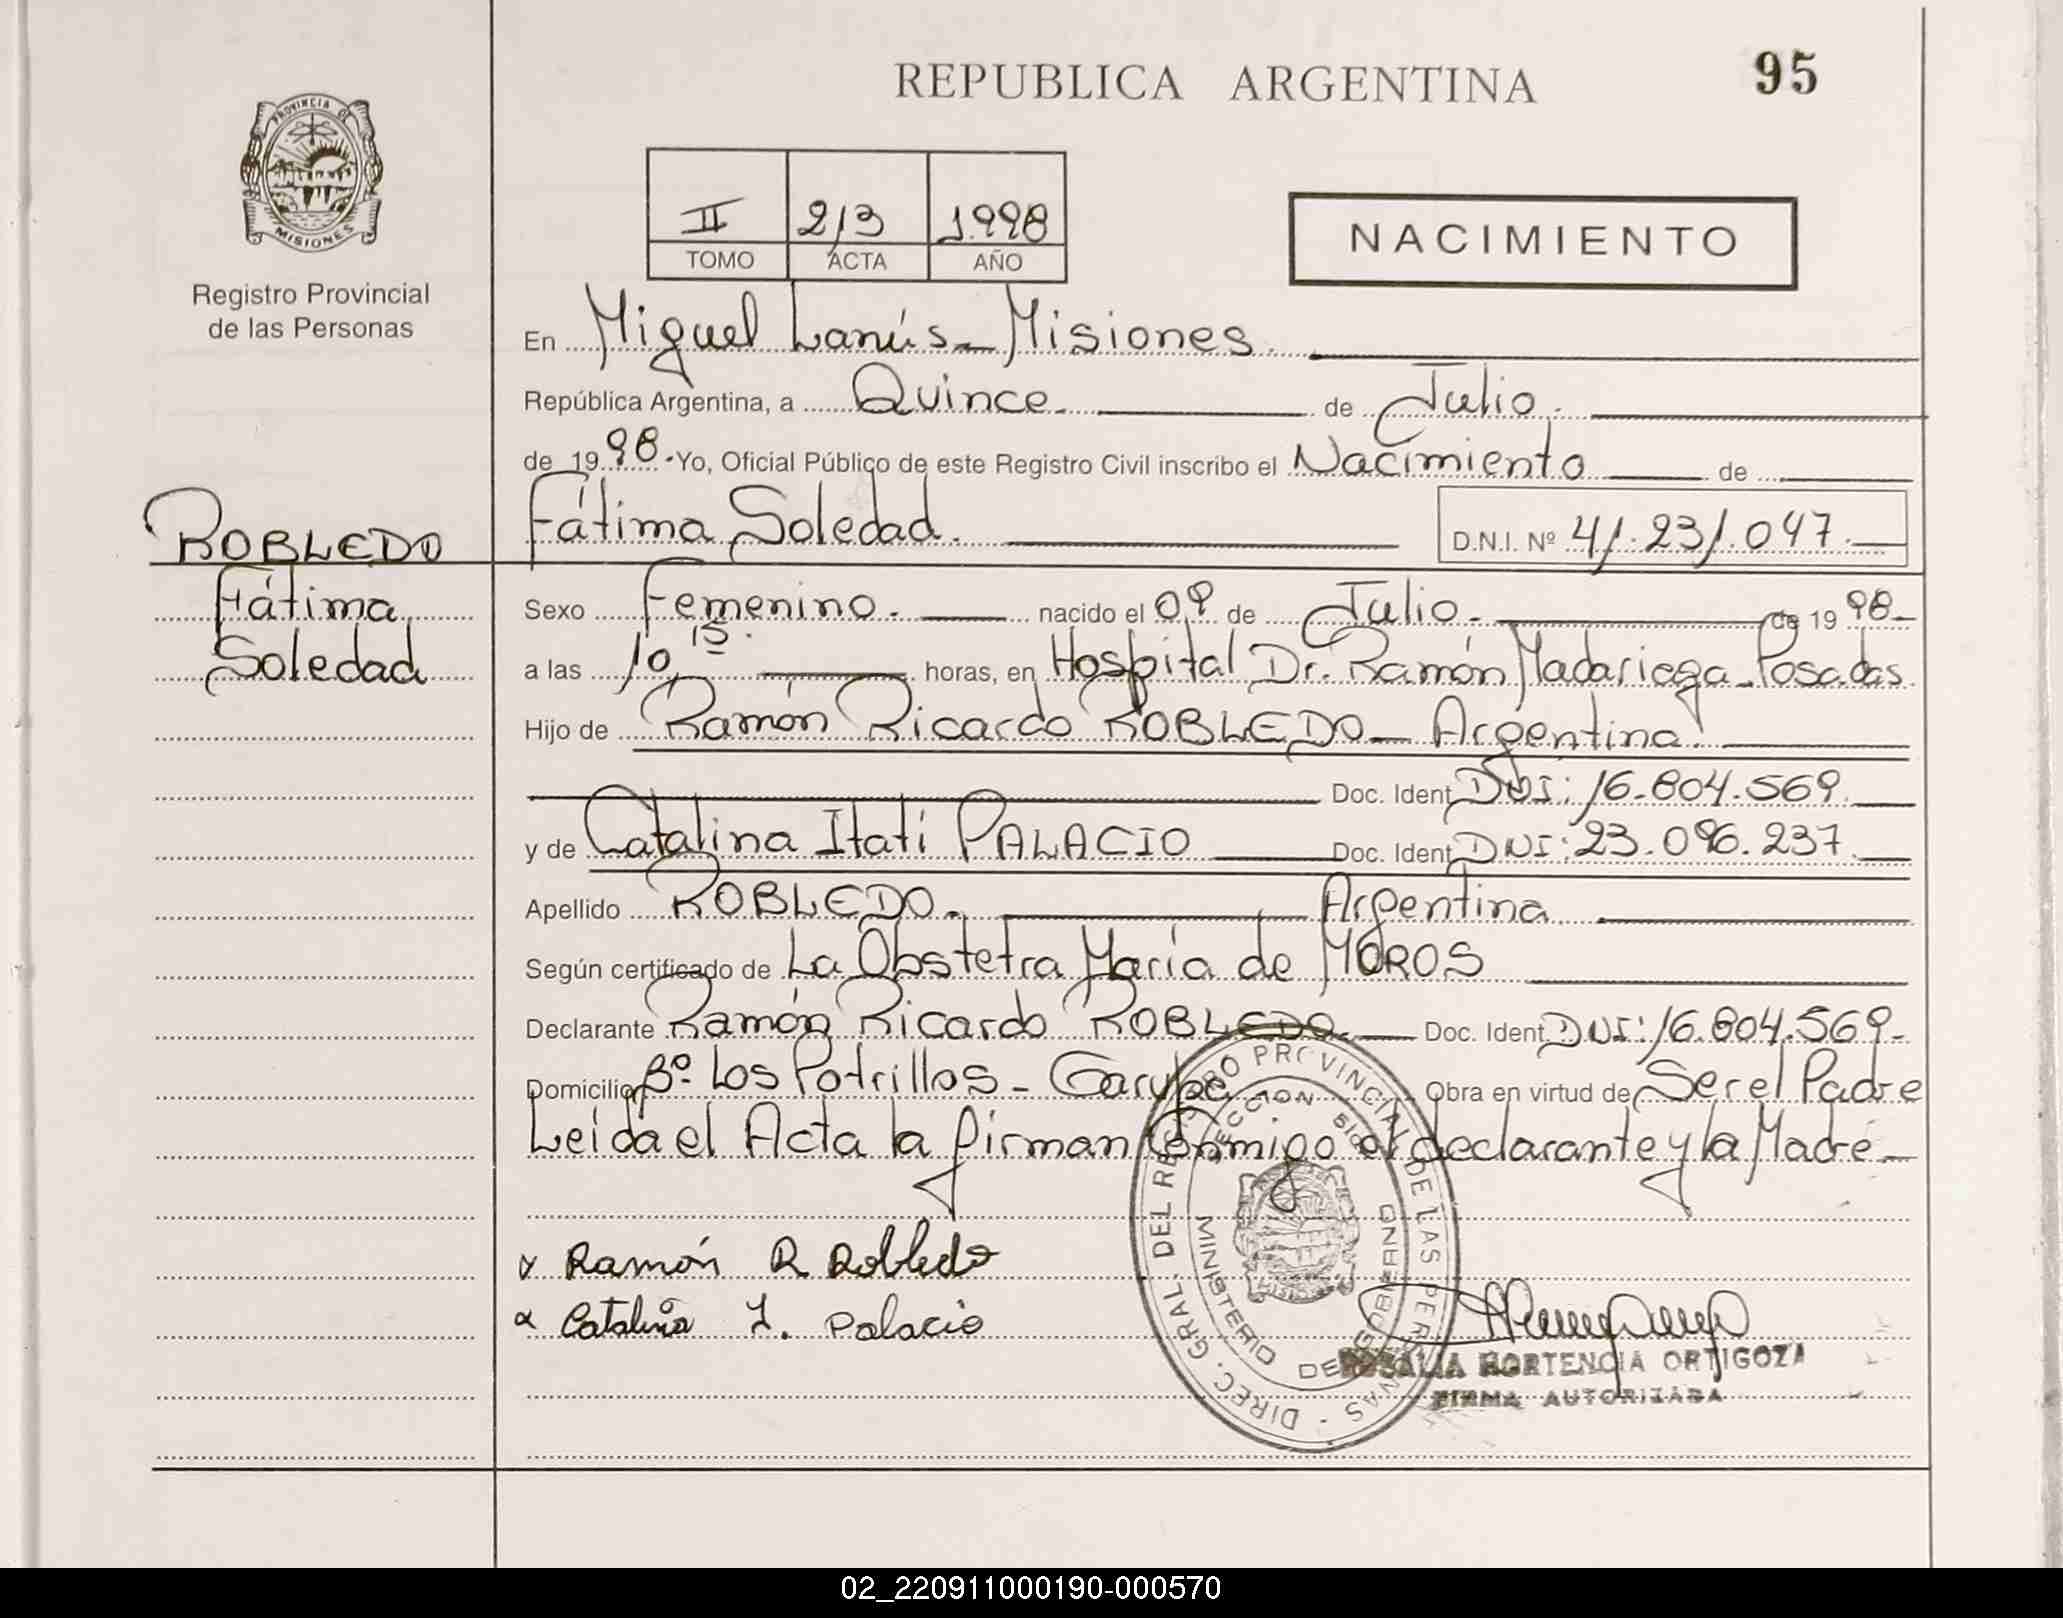 REPUBLICA ARGENTINA
95
PROVINCIA DE
MISIONES
Registro Provincial
de las Personas
II 213 1.998
TOMO ACTA AÑO
NACIMIENTO
En Miguel Lanús - Misiones.
República Argentina, a Quince. de Julio.
de 1998.-Yo, Oficial Público de este Registro Civil inscribo el Nacimiento de
ROBLEDO
Fátima
Soledad
Fátima Soledad.
D.N.I. Nº 41.231.047.
Sexo Femenino. nacido el 09 de Julio. de 1998-
a las 10,15. horas, en Hospital Dr. Ramón Madariaga - Posadas
Hijo de Ramón Ricardo ROBLEDO - Argentina.
Doc. Ident. DNI: 16.804.569.
y de Catalina Itatí PALACIO Doc. Ident. DNI: 23.096.237.
Apellido ROBLEDO. Argentina
Según certificado de La Obstetra María de MOROS
Declarante Ramón Ricardo ROBLEDO. Doc. Ident. DNI: 16.804.569.
Domicilio Bº. Los Potrillos - Garupá Obra en virtud de Ser el Padre
Leída el Acta la firman Conmigo el declarante y la Madre
x Ramón R Robledo
x Catalina I. Palacio
DIREC. GRAL. DEL REGISTRO PROVINCIAL DE LAS PERSONAS
MINISTERIO DE GOBIERNO
ROSALIA HORTENCIA ORTIGOZA
FIRMA AUTORIZADA
02_220911000190-000570